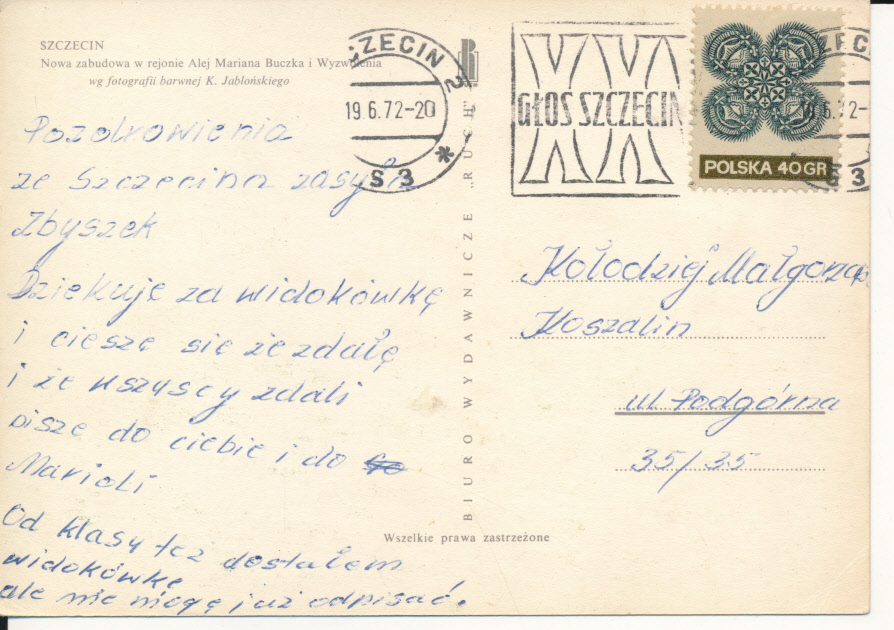 SZCZECIN
Nowa zabudowa w rejonie Alej Mariana Buczka i Wyzwolenia
wg fotografii barwnej K. Jabłońskiego
Pozdrowienia
ze Szczecina zasyła
Zbyszek
Dziekuję za widokówkę
i cieszę się że zdałę
i że wszyscy zdali
pisze do ciebie i do
Marioli
Od klasy tez dostałem
widokówkę
ale nie mogę już odpisać.
BIURO WYDAWNICZE „RUCH”
Wszelkie prawa zastrzeżone
SZCZECIN 2
19.6.72-20
S 3
GŁOS SZCZECIN
POLSKA 40 GR
6.72-
3
Kołodziej Małgorzapa
Koszalin
ul Podgórna
35/35